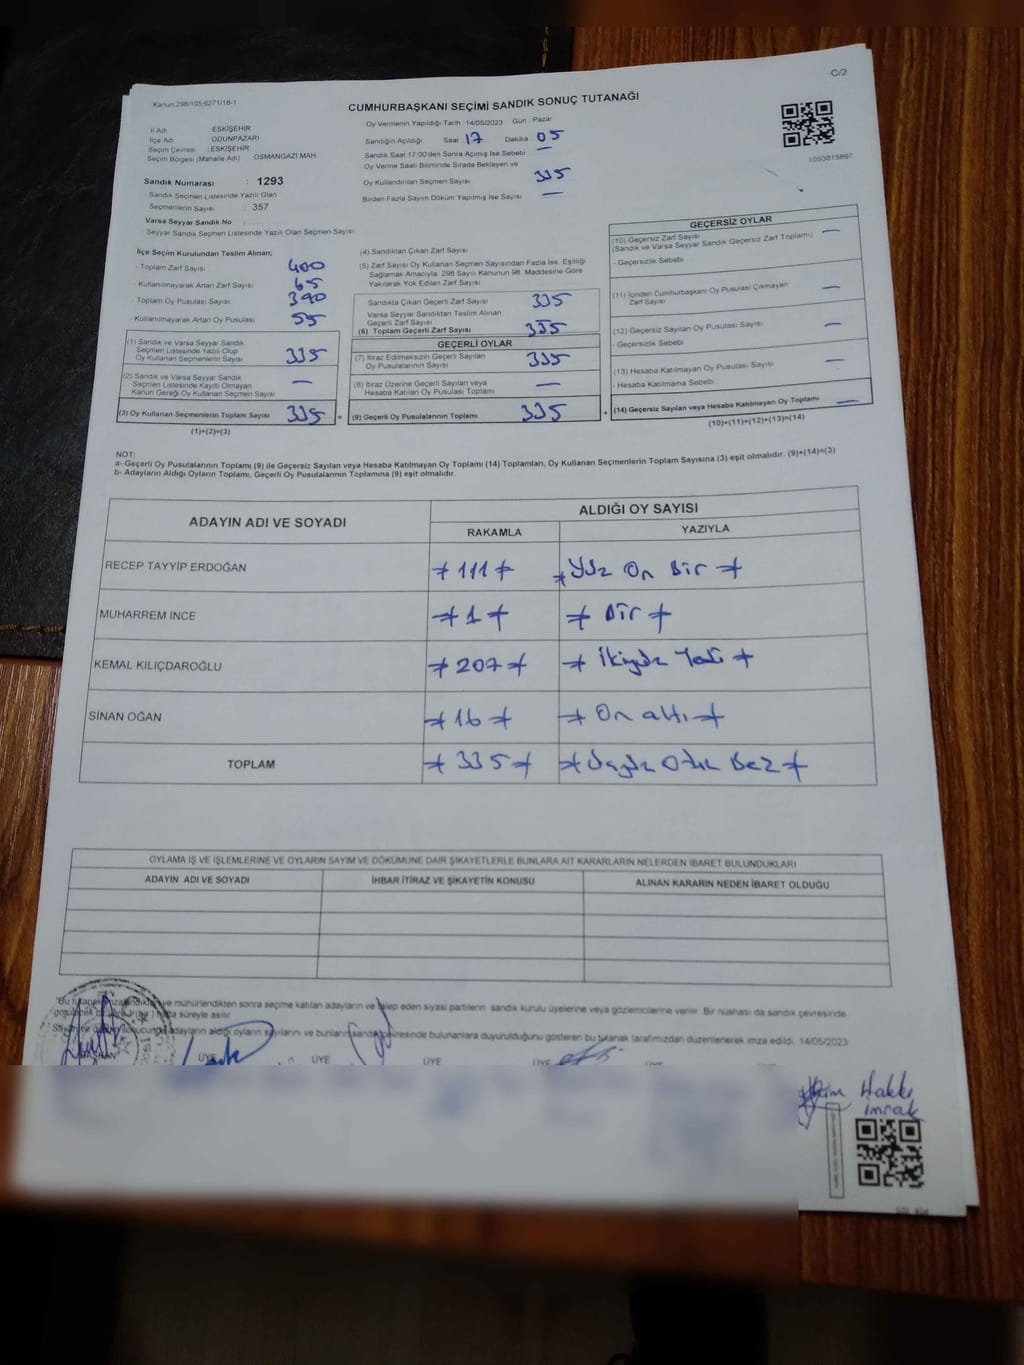 C/2
Kanun:298/105;6271/18-1
CUMHURBAŞKANI SEÇİMİ SANDIK SONUÇ TUTANAĞI
İl Adı : ESKİŞEHİR
İlçe Adı : ODUNPAZARI
Seçim Çevresi : ESKİŞEHİR
Seçim Bölgesi (Mahalle Adı) OSMANGAZİ MAH
Oy Vermenin Yapıldığı Tarih :14/05/2023 Gün : Pazar
Sandığın Açıldığı Saat 17 Dakika 05
Sandık Saat 17:00'den Sonra Açımış İse Sebebi —
Oy Verme Saati Bitiminde Sırada Bekleyen ve
Oy Kullandırılan Seçmen Sayısı 335
Birden Fazla Sayım Döküm Yapılmış İse Sayısı —
Sandık Numarası : 1293
Sandık Seçmen Listesinde Yazılı Olan
Seçmenlerin Sayısı : 357
Varsa Seyyar Sandık No :
Seyyar Sandık Seçmen Listesinde Yazılı Olan Seçmen Sayısı:
İlçe Seçim Kurulundan Teslim Alınan;
- Toplam Zarf Sayısı 400
- Kullanılmayarak Artan Zarf Sayısı 65
- Toplam Oy Pusulası Sayısı 390
- Kullanılmayarak Artan Oy Pusulası 55
(1) Sandık ve Varsa Seyyar Sandık
Seçmen Listesinde Yazılı Olup
Oy Kullanan Seçmenlerin Sayısı 335
(2) Sandık ve Varsa Seyyar Sandık
Seçmen Listesinde Kayıtlı Olmayan
Kanun Gereği Oy Kullanan Seçmen Sayısı —
(3) Oy Kullanan Seçmenlerin Toplam Sayısı 335 =
(1)+(2)=(3)
(4) Sandıktan Çıkan Zarf Sayısı
(5) Zarf Sayısı Oy Kullanan Seçmen Sayısından Fazla İse, Eşitliği
Sağlamak Amacıyla; 298 Sayılı Kanunun 98. Maddesine Göre
Yakılarak Yok Edilen Zarf Sayısı
Sandıkta Çıkan Geçerli Zarf Sayısı 335
Varsa Seyyar Sandıktan Teslim Alınan
Geçerli Zarf Sayısı
(6) Toplam Geçerli Zarf Sayısı 335
GEÇERLİ OYLAR
(7) İtiraz Edilmeksizin Geçerli Sayılan
Oy Pusulalarının Sayısı 335
(8) İtiraz Üzerine Geçerli Sayılan veya
Hesaba Katılan Oy Pusulası Toplamı —
(9) Geçerli Oy Pusulalarının Toplamı 335 +
GEÇERSİZ OYLAR
(10) Geçersiz Zarf Sayısı
(Sandık ve Varsa Seyyar Sandık Geçersiz Zarf Toplamı) —
- Geçersizlik Sebebi
(11) İçinden Cumhurbaşkanı Oy Pusulası Çıkmayan
Zarf Sayısı —
(12) Geçersiz Sayılan Oy Pusulası Sayısı —
- Geçersizlik Sebebi
(13) Hesaba Katılmayan Oy Pusulası Sayısı —
Hesaba Katılmama Sebebi
(14) Geçersiz Sayılan veya Hesaba Katılmayan Oy Toplamı —
(10)+(11)+(12)+(13)=(14)
NOT:
a- Geçerli Oy Pusulalarının Toplamı (9) ile Geçersiz Sayılan veya Hesaba Katılmayan Oy Toplamı (14) Toplamları, Oy Kullanan Seçmenlerin Toplam Sayısına (3) eşit olmalıdır. (9)+(14)=(3)
b- Adayların Aldığı Oyların Toplamı, Geçerli Oy Pusulalarının Toplamına (9) eşit olmalıdır.
ADAYIN ADI VE SOYADI ALDIĞI OY SAYISI
RAKAMLA YAZIYLA
RECEP TAYYİP ERDOĞAN 111 Yüz On Bir
MUHARREM İNCE 1 Bir
KEMAL KILIÇDAROĞLU 207 İkiyüz Yedi
SİNAN OĞAN 16 On altı
TOPLAM 335 Üçyüz Otuz Beş
OYLAMA İŞ VE İŞLEMLERİNE VE OYLARIN SAYIM VE DÖKÜMÜNE DAİR ŞİKAYETLERLE BUNLARA AİT KARARLARIN NELERDEN İBARET BULUNDUKLARI
ADAYIN ADI VE SOYADI İHBAR İTİRAZ VE ŞİKAYETİN KONUSU ALINAN KARARIN NEDEN İBARET OLDUĞU
ve mühürlendikten sonra seçime katılan adayların ve talep eden siyasi partilerin sandık kurulu üyelerine veya gözlemcilerine verilir. Bir nüshası da sandık çevresinde
hafta süreyle asılır
adayların aldığı oyların sayılarını ve bunların sandık çevresinde bulunanlara duyurulduğunu gösteren bu tutanak tarafımızdan düzenlenerek imza edildi. 14/05/2023
BAŞKAN ÜYE ÜYE ÜYE ÜYE
Hakkı